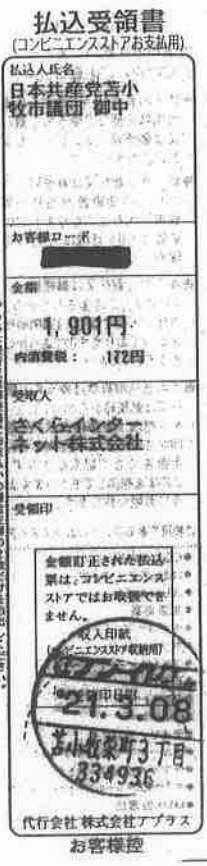 払込受領書
(コンビニエンスストアお支払用)
払込人氏名
日本共産党苫小
牧市議団 御中
お客様コード
金額
1,901円
内消費税： 172円
受取人
さくらインター
ネット株式会社
受領印
金額訂正された払込
票は、コンビニエンス
ストアではお取扱でき
ません。
収入印紙
(コンビニエンスストア収納用)
セブン-イレブン
21.3.08
苫小牧栄町3丁目
334936
代行会社 株式会社アプラス
お客様控